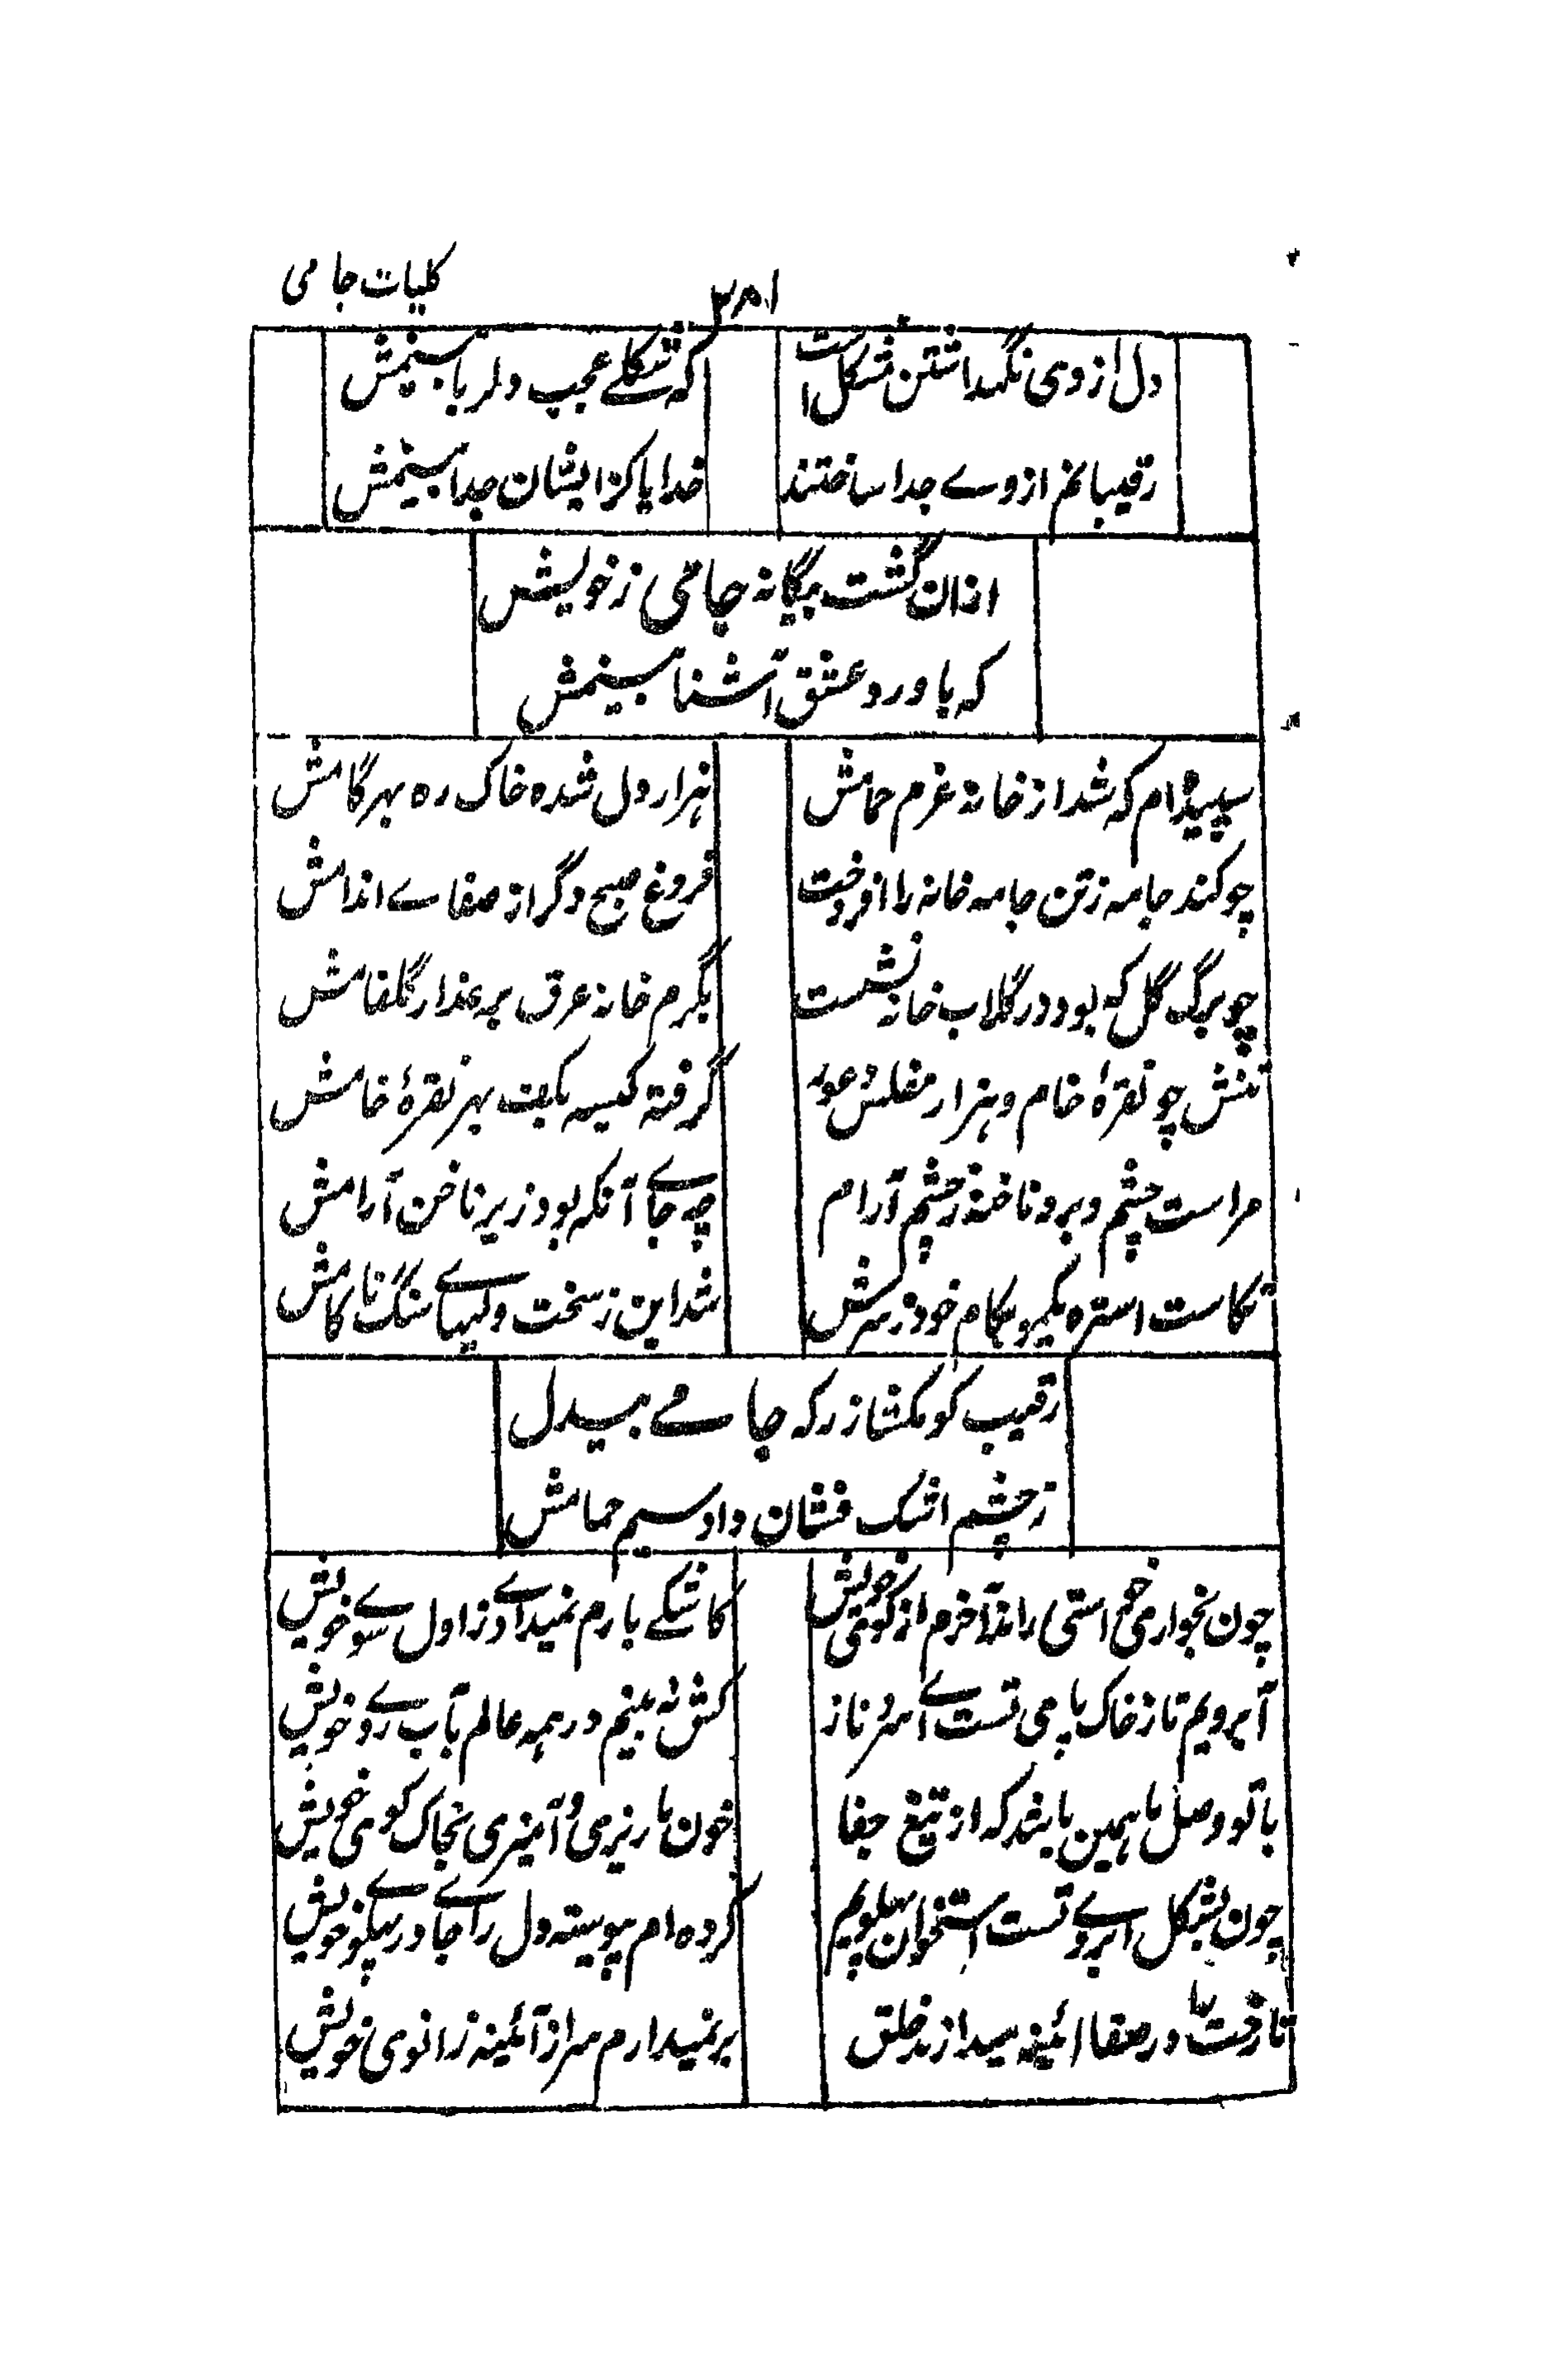 کلیات جامی
۳۸۱
دل از وی نگهداشتن مشکل است
که شکلے عجب دلربا بینمش
رقیبانم از وے جدا ساختند
خدایا کز ایشان جدا بینمش
ازان گشت بیگانه جامی ز خویش
که با درد عشق آشنا بینمش
سپیده‌ام که شد از خانه عزم حمامش
هزار دل شده خاک ره بهر گامش
چو کند جامه ز تن جامه خانه را افروخت
فروغ صبح دگر از صفاے اندامش
چو برگ گل که بود در گلاب خانه نشست
بگرم خانه عرق بر عذار گلفامش
تنش چو نقرهٔ خام و هزار مفلس عور
گرفته کیسه بکف بهر نقرهٔ خامش
مراست چشم و برو ناخنه ز چشم آرام
چه جاے آنکه بود زیر ناخن آرامش
نکاست استره یکمو بکام خود ز سرش
شد این ز سخت دلیهاے سنگ ناکامش
رقیب کو مکشا زر که جامے بیدل
ز چشم اشک فشان داد سیم حمامش
چون بخواری خواستی راند آخرم از کوی خویش
کاشکے بارم نمیدادے ز اول سوے خویش
آبرویم تا ز خاک پای تست اے سرو ناز
کش نه بینم در همه عالم بآب روے خویش
با تو وصل ما همین باشد که از تیغ جفا
خون ما ریزی و آمیزی بخاک کوی خویش
چون بشکل ابروے تست استخوان پهلویم
کرده‌ام پیوسته دل را جاے در پهلوے خویش
تا رخت را در صفا آئینه میدارند خلق
بر نمیدارم سر از آئینه زانوی خویش